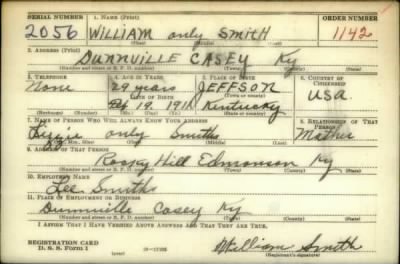 SERIAL NUMBER 1. NAME (Print) ORDER NUMBER
2056 WILLIAM only SMITH 1142
(First) (Middle) (Last)
2. ADDRESS (Print)
DUNNVILLE CASEY Ky
(Number and street or R. F. D. number) (Town) (County) (State)
3. TELEPHONE 4. AGE IN YEARS 5. PLACE OF BIRTH 6. COUNTRY OF CITIZENSHIP
None 29 years JEFFSON
DATE OF BIRTH (Town or county)
19. 1911 Kentucky USA.
(Exchange) (Number) (Mo.) (Day) (Yr.) (State or country)
7. NAME OF PERSON WHO WILL ALWAYS KNOW YOUR ADDRESS 8. RELATIONSHIP OF THAT PERSON
Lizzie only Smiths Mother
(Mr., Mrs., Miss) (First) (Middle) (Last)
9. ADDRESS OF THAT PERSON
Rocky Hill Edmonson Ky
(Number and street or R. F. D. number) (Town) (County) (State)
10. EMPLOYER'S NAME
Lee Smiths
11. PLACE OF EMPLOYMENT OR BUSINESS
Dunnville Casey Ky
(Number and street or R. F. D. number) (Town) (County) (State)
I AFFIRM THAT I HAVE VERIFIED ABOVE ANSWERS AND THAT THEY ARE TRUE.
REGISTRATION CARD
D. S. S. Form 1 (over) William Smith
(Registrant's signature)